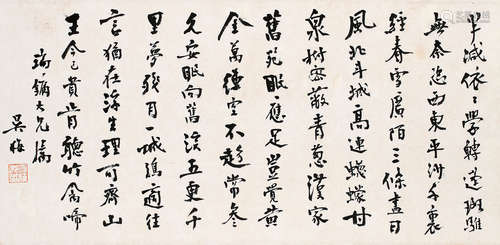 半減依依學轉蓬班騅
無奈恣西東平沙千裏
經春雪廣陌三條盡日
風北斗城高連蠛蠓甘
泉樹密蔽青葱漢家
舊苑眠應足豈覺黃
金萬縷空不趁常參
久安眠向舊溪五更千
里夢殘月一城鷄適往
言猶在浮生理可齊山
王今已貴肯聽竹禽啼
大兄屬
吳梅